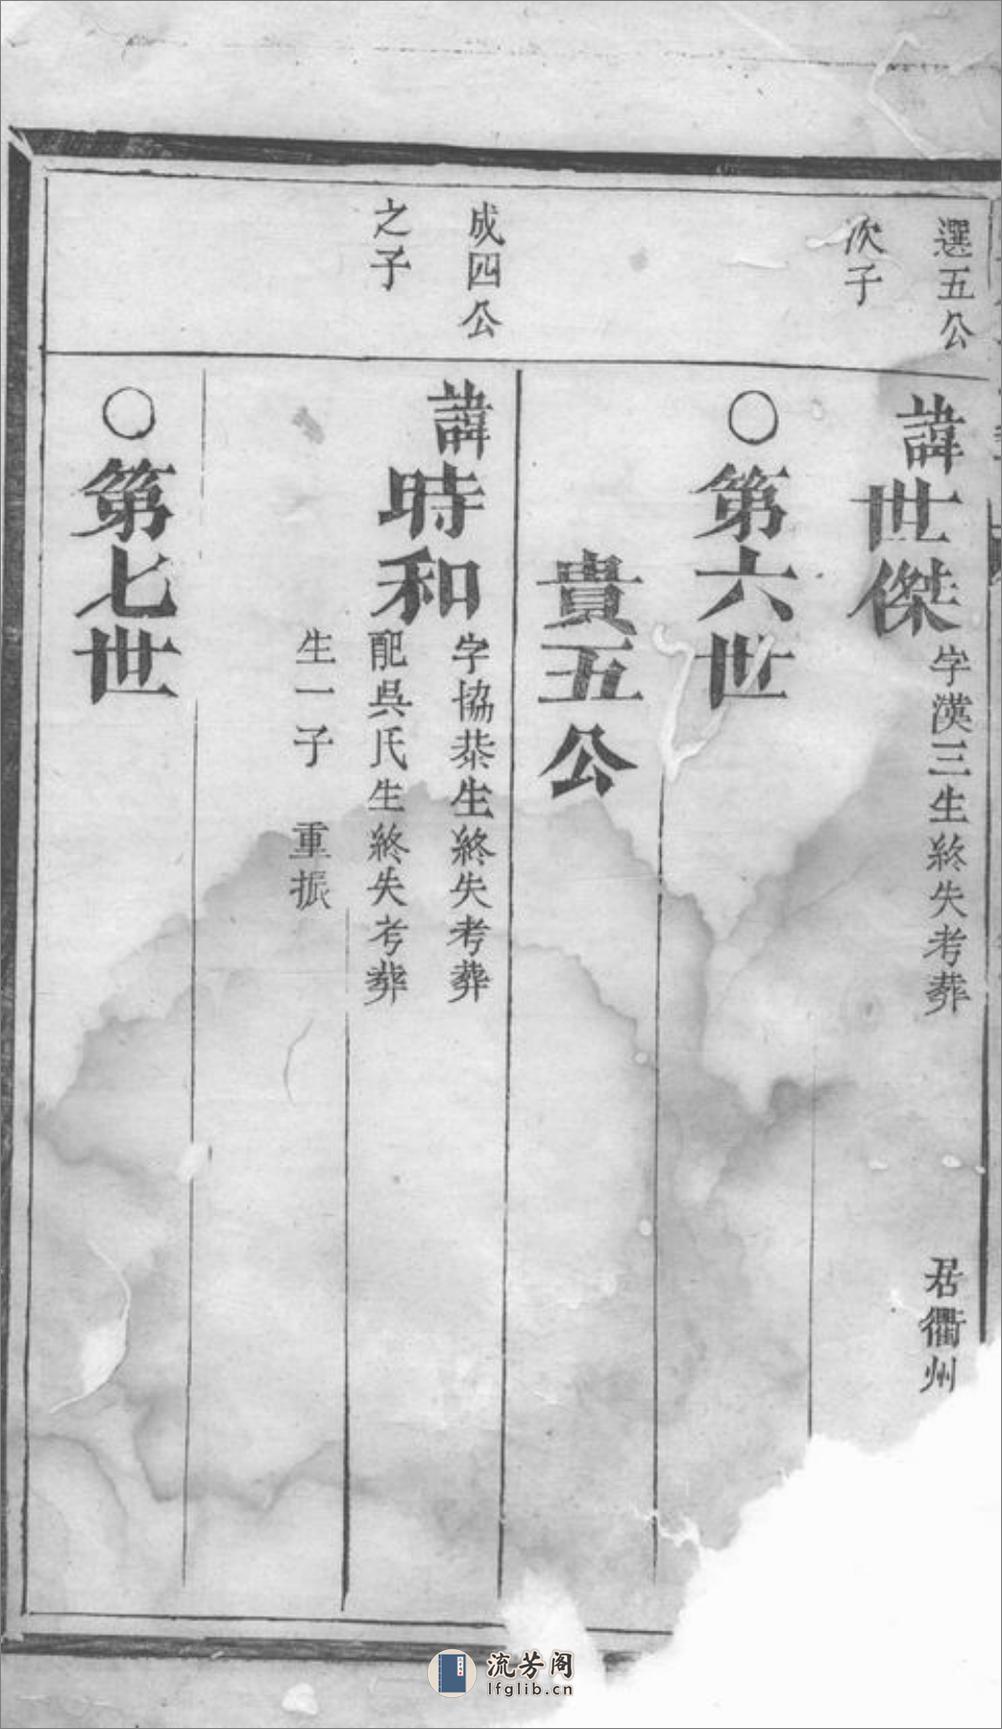 選五公
次子
諱世傑
字漢三生終失考葬 君衢州
○第六世
貴五公
成四公
之子
諱時和
字協恭生終失考葬
配吳氏生終失考葬
生一子 重振
○第七世
流芳阁
lfglib.cn